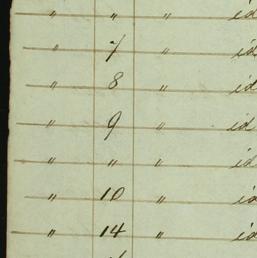 " " " id
" 7 " id
" 8 " id
" 9 " id
" " " id
" 10 " id
" 14 " id